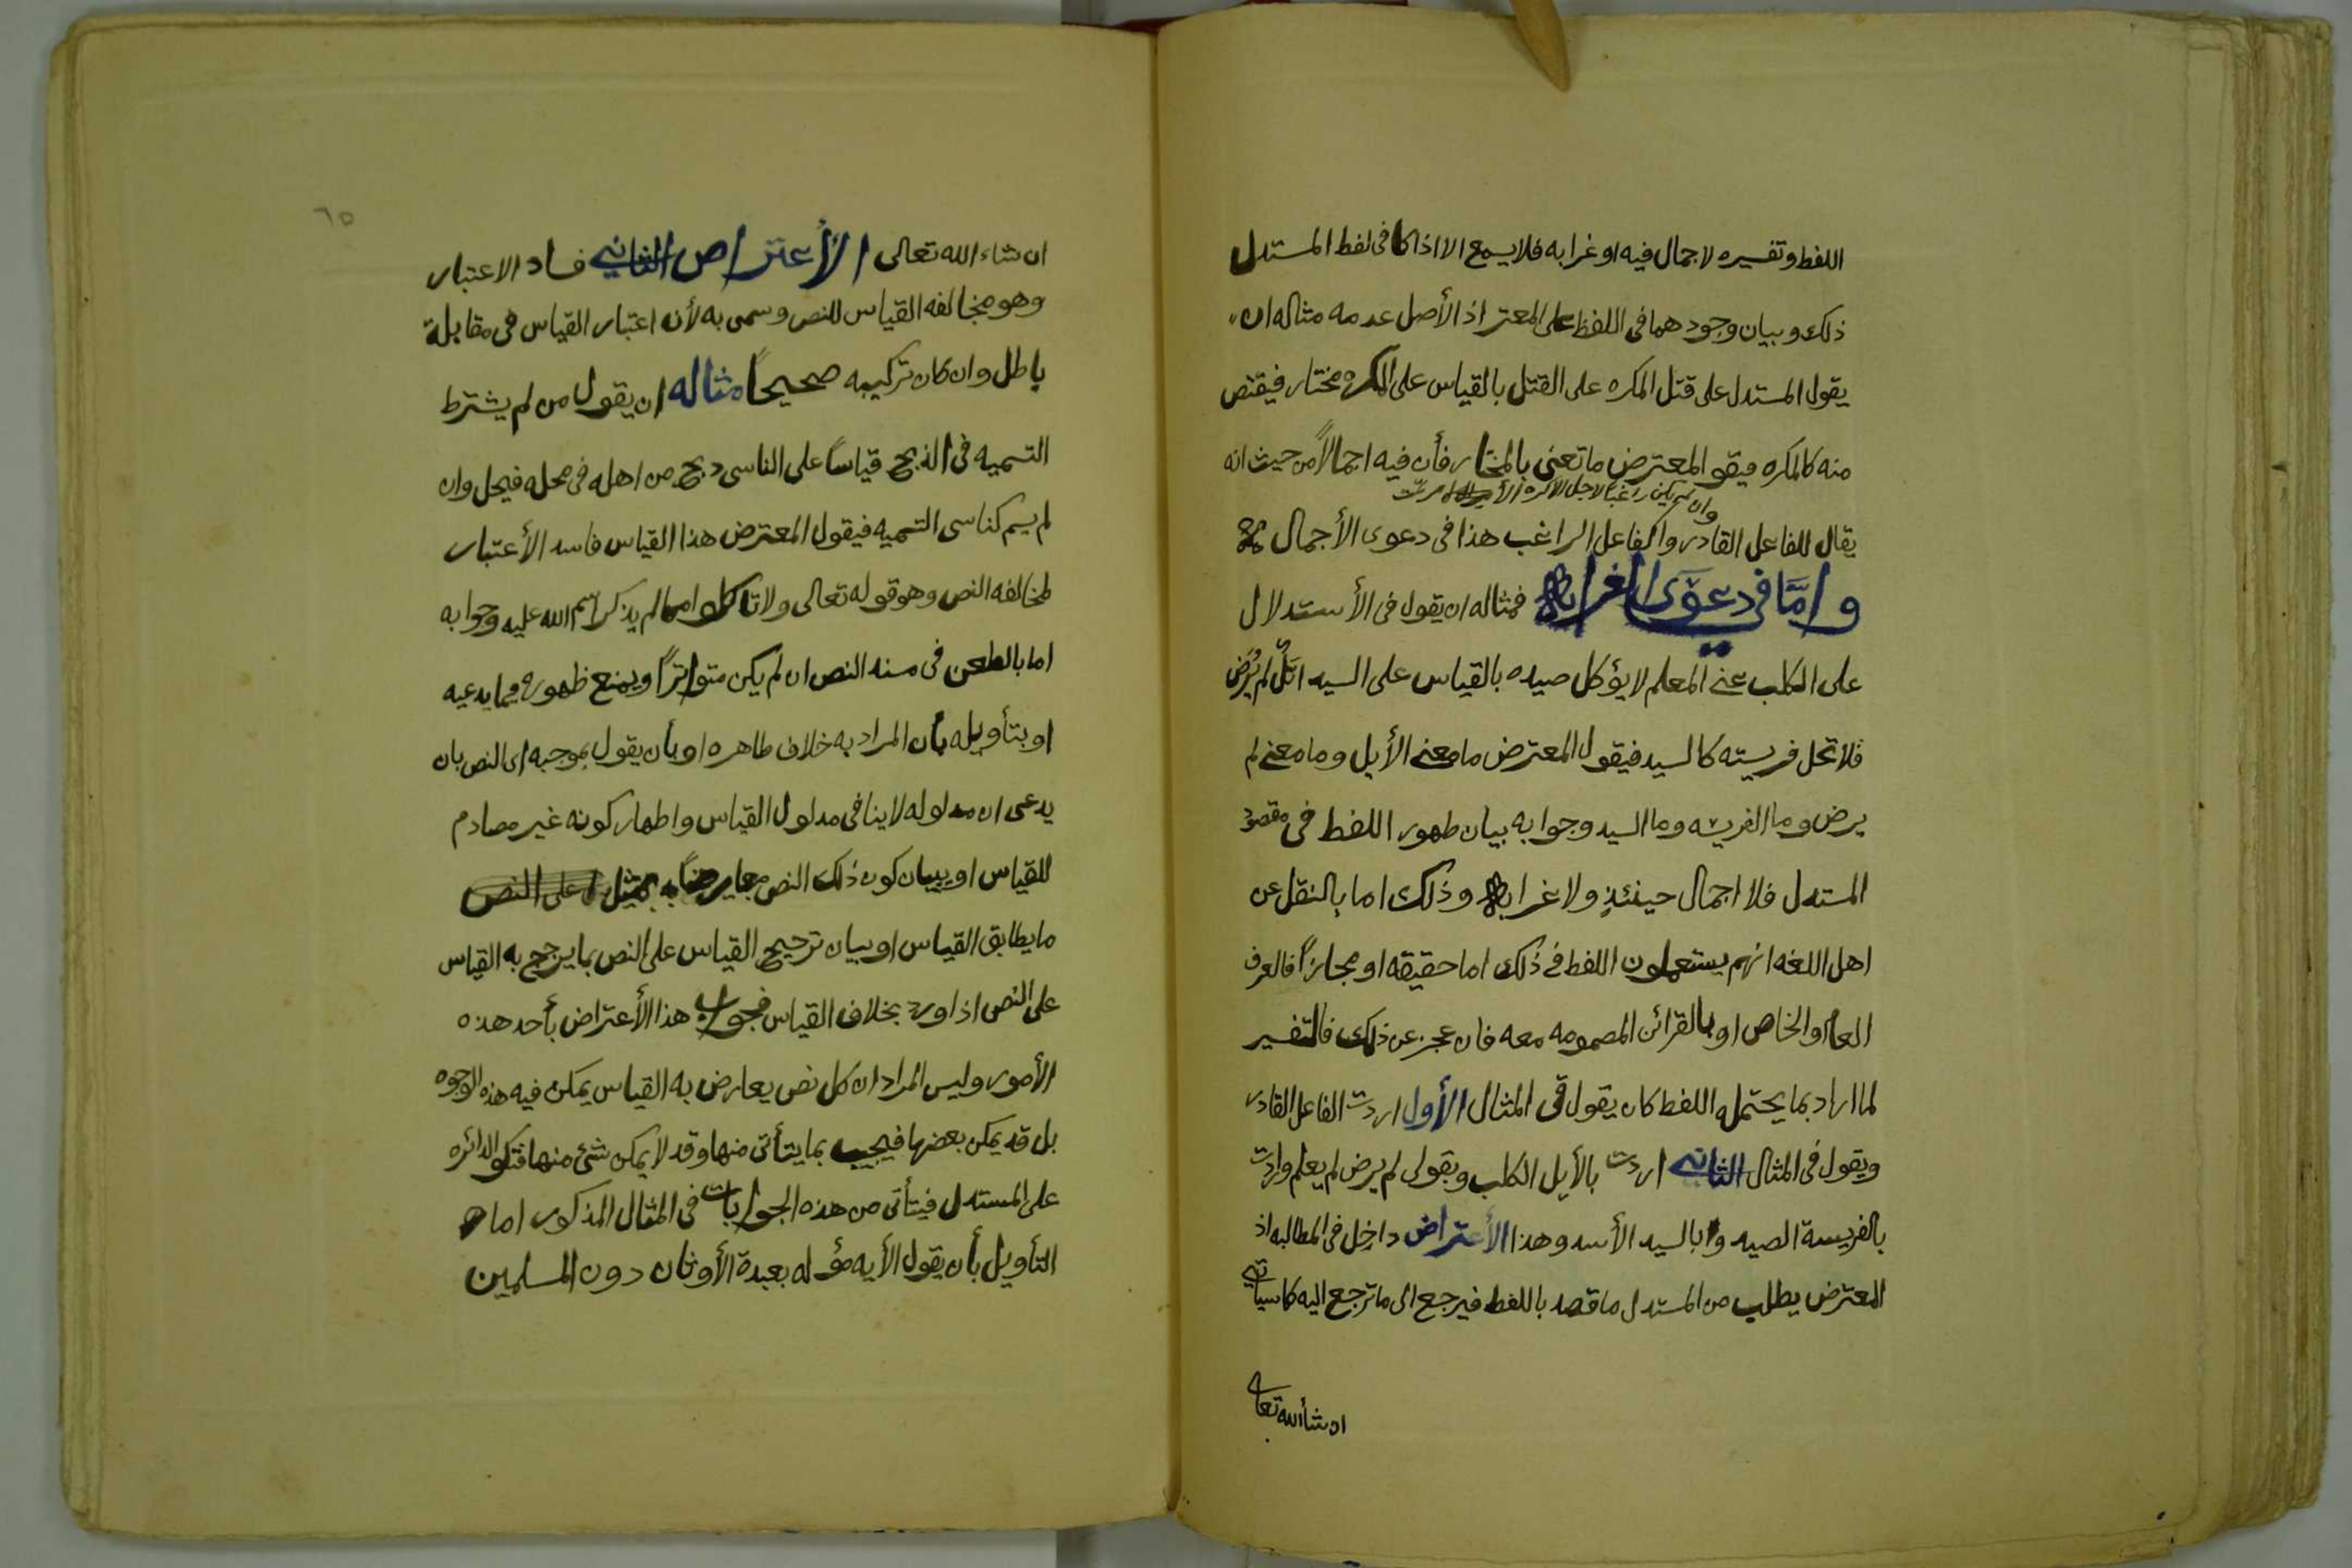 اللفط وتفسيره لاجمال فيه او غرابه فلا يسمع الا اذا كا فى لفط المستدل
ذلك وبيان وجودهما فى اللفظ على المعتر اذ الأصل عدمه مثاله ان
يقول المستدل على قتل المكره على القتل بالقياس على المكره مختار فيقتص
منه كالمكره فيقو المعترض ما تعنى بالمختار فأن فيه اجمالاً من حيث انه
وان لم يكن راغبا لاجل الاكره
يقال للفاعل القادر والفاعل الراغب هذا فى دعوى الأجمال
وامَّا فى دعوَى الغرابه فمثاله ان يقول فى الأستدلال
على الكلب غير المعلم لا يؤكل صيده بالقياس على السيد ايَّلٌ لم يُرَض
فلا تحل فريسته كالسيد فيقول المعترض ما معنى الأيل وما معنى لم
يرض وما الفريسه وما السيد وجوابه بيان ظهور اللفط فى مقصود
المستدل فلا اجمال حينئذٍ ولا غرابه وذلك اما بالنقل عن
اهل اللغه انهم يستعملون اللفط فى ذلك اما حقيقه او مجازاً فالعرف
العام او الخاص او بالقرائن المضمومه معه فان عجز عن ذلك فالتفسير
لما اراد بما يحتمله اللفط كان يقول فى المثال الأول اردت الفاعل القادر
ويقول فى المثال الثانى اردت بالأيل الكلب وبقولى لم يرض لم يعلم واردت
بالفريسة الصيد وبالسيد الأسد وهذا الأعتراض داخل فى المطالبه اذ
المعترض يطلب من المستدل ما قصد باللفط فيرجع الى ما ترجع اليه كما سيأتى
ان شأ الله تعالى
٦٥
ان شاء الله تعالى الأعتراض الثانى فساد الاعتبار
وهو مخالفه القياس للنص وسمى به لأن اعتبار القياس فى مقابلة
باطل وان كان تركيبه صحيحاً مثاله ان يقول من لم يشترط
التسميه فى الذبح قياساً على الناسى ذبح من اهله فى محله فيحل وان
لم يسم كناسى التسميه فيقول المعترض هذا القياس فاسد الأعتبار
لمخالفه النص وهو قوله تعالى ولا تاكلوا مما لم يذكر اسم الله عليه وجوابه
اما بالطعن فى سند النص ان لم يكن متواتراً ويمنع ظهوره فيما يدعيه
او بتأويله بأن المراد به خلاف ظاهره او بأن يقول بموجبه اى النص بان
يدعى ان مدلوله لا ينافى مدلول القياس واظهار كونه غير مصادم
للقياس او ببيان كون ذلك النص معارضاً به بمثل على النص
ما يطابق القياس او بيان ترجيح القياس على النص بما يرجح به القياس
على النص اذا ورد بخلاف القياس فجواب هذا الأعتراض بأحد هذه
الأمور وليس المراد ان كل نص يعارض به القياس يمكن فيه هذه الوجوه
بل قد يمكن بعضها فيجيب بما يتأتى منها وقد لا يمكن شئ منها فتكو الدائره
على المستدل فيتأتى من هذه الجوابات فى المثال المذكور اما
التأويل بأن يقول الأيه مؤله بعبدة الأوثان دون المسلمين